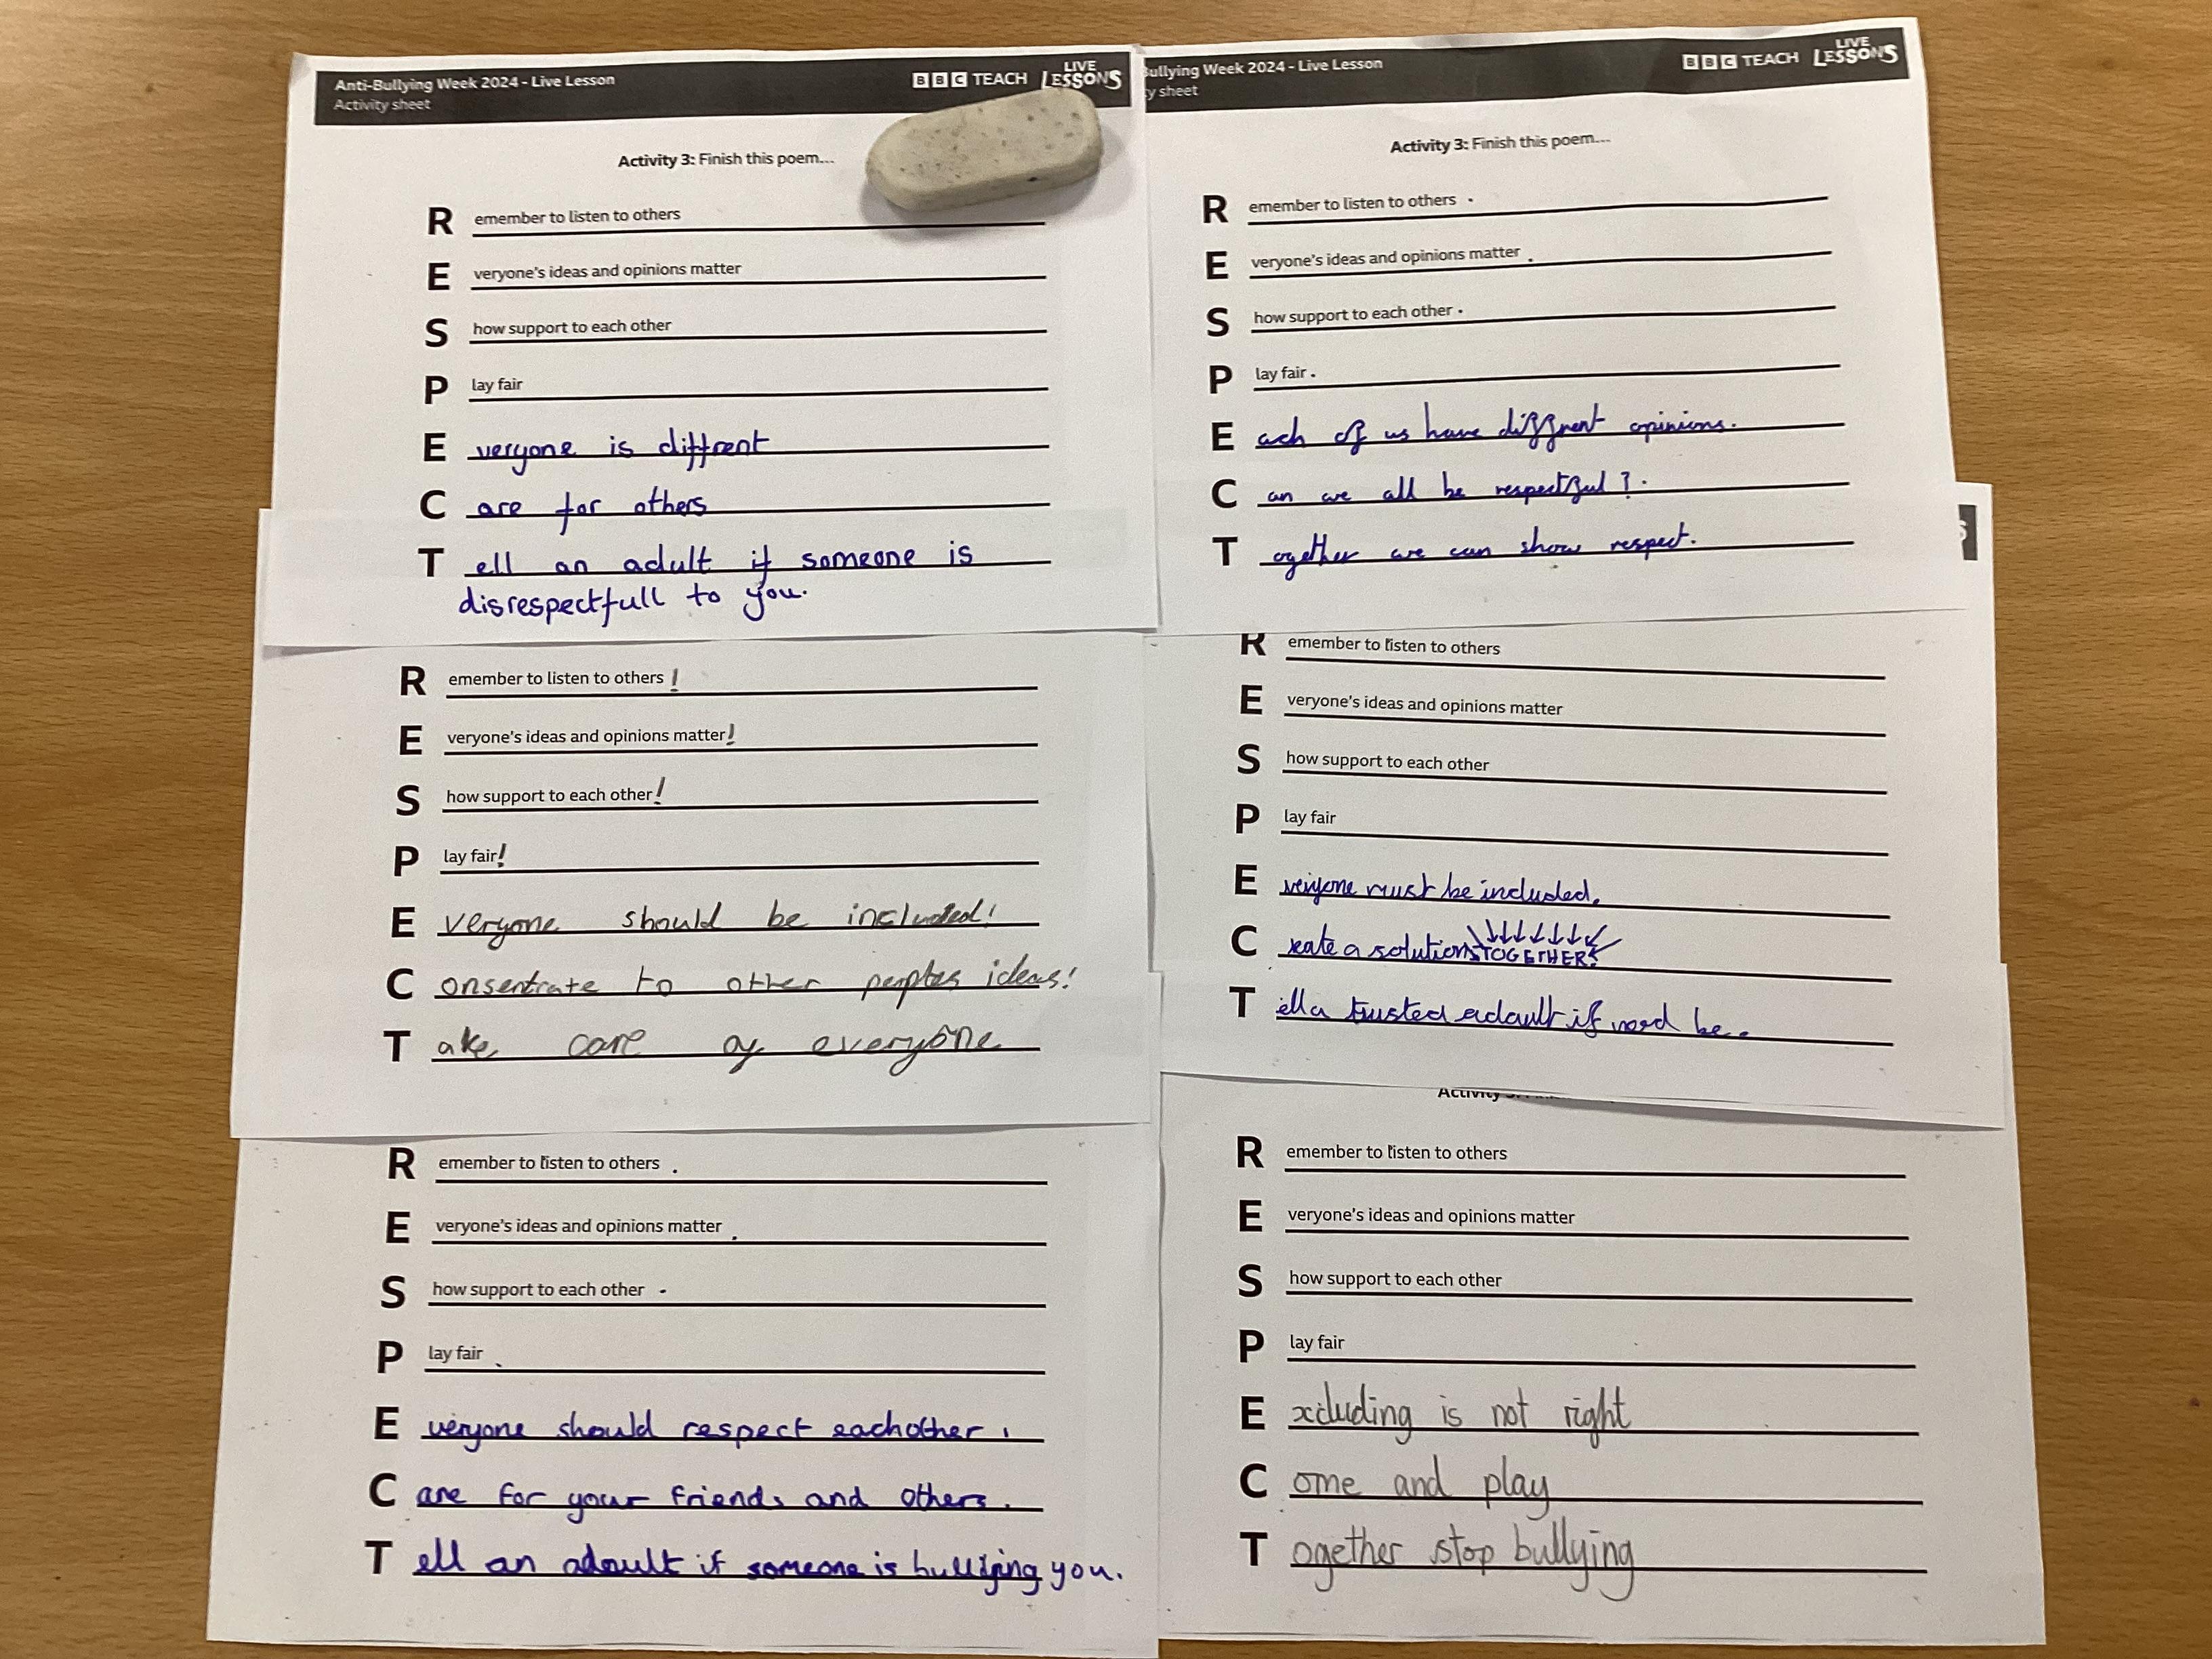 Anti-Bullying Week 2024 - Live Lesson
Activity sheet
BBC TEACH LIVE LESSONS
Activity 3: Finish this poem...
R emember to listen to others
E veryone's ideas and opinions matter
S how support to each other
P lay fair
E veryone is diffrent
C are for others
T ell an adult if someone is
disrespectfull to you.
Bullying Week 2024 - Live Lesson
y sheet
BBC TEACH LIVE LESSONS
Activity 3: Finish this poem...
R emember to listen to others .
E veryone's ideas and opinions matter .
S how support to each other .
P lay fair .
E ach of us have diffrent opinions.
C an we all be respectful?.
T ogether we can show respect.
R emember to listen to others !
E veryone's ideas and opinions matter!
S how support to each other!
P lay fair!
E veryone should be included!
C onsentrate to other peoples ideas!
T ake care of everyone
S
R emember to listen to others
E veryone's ideas and opinions matter
S how support to each other
P lay fair
E veryone must be included.
C reate a solution TOGETHER!
T ell a trusted adault if need be.
R emember to listen to others .
E veryone's ideas and opinions matter .
S how support to each other .
P lay fair .
E veryone should respect eachother .
C are for your friends and others.
T ell an adault if someone is bulliying you.
Activity
R emember to listen to others
E veryone's ideas and opinions matter
S how support to each other
P lay fair
E xcluding is not right
C ome and play
T ogether stop bullying